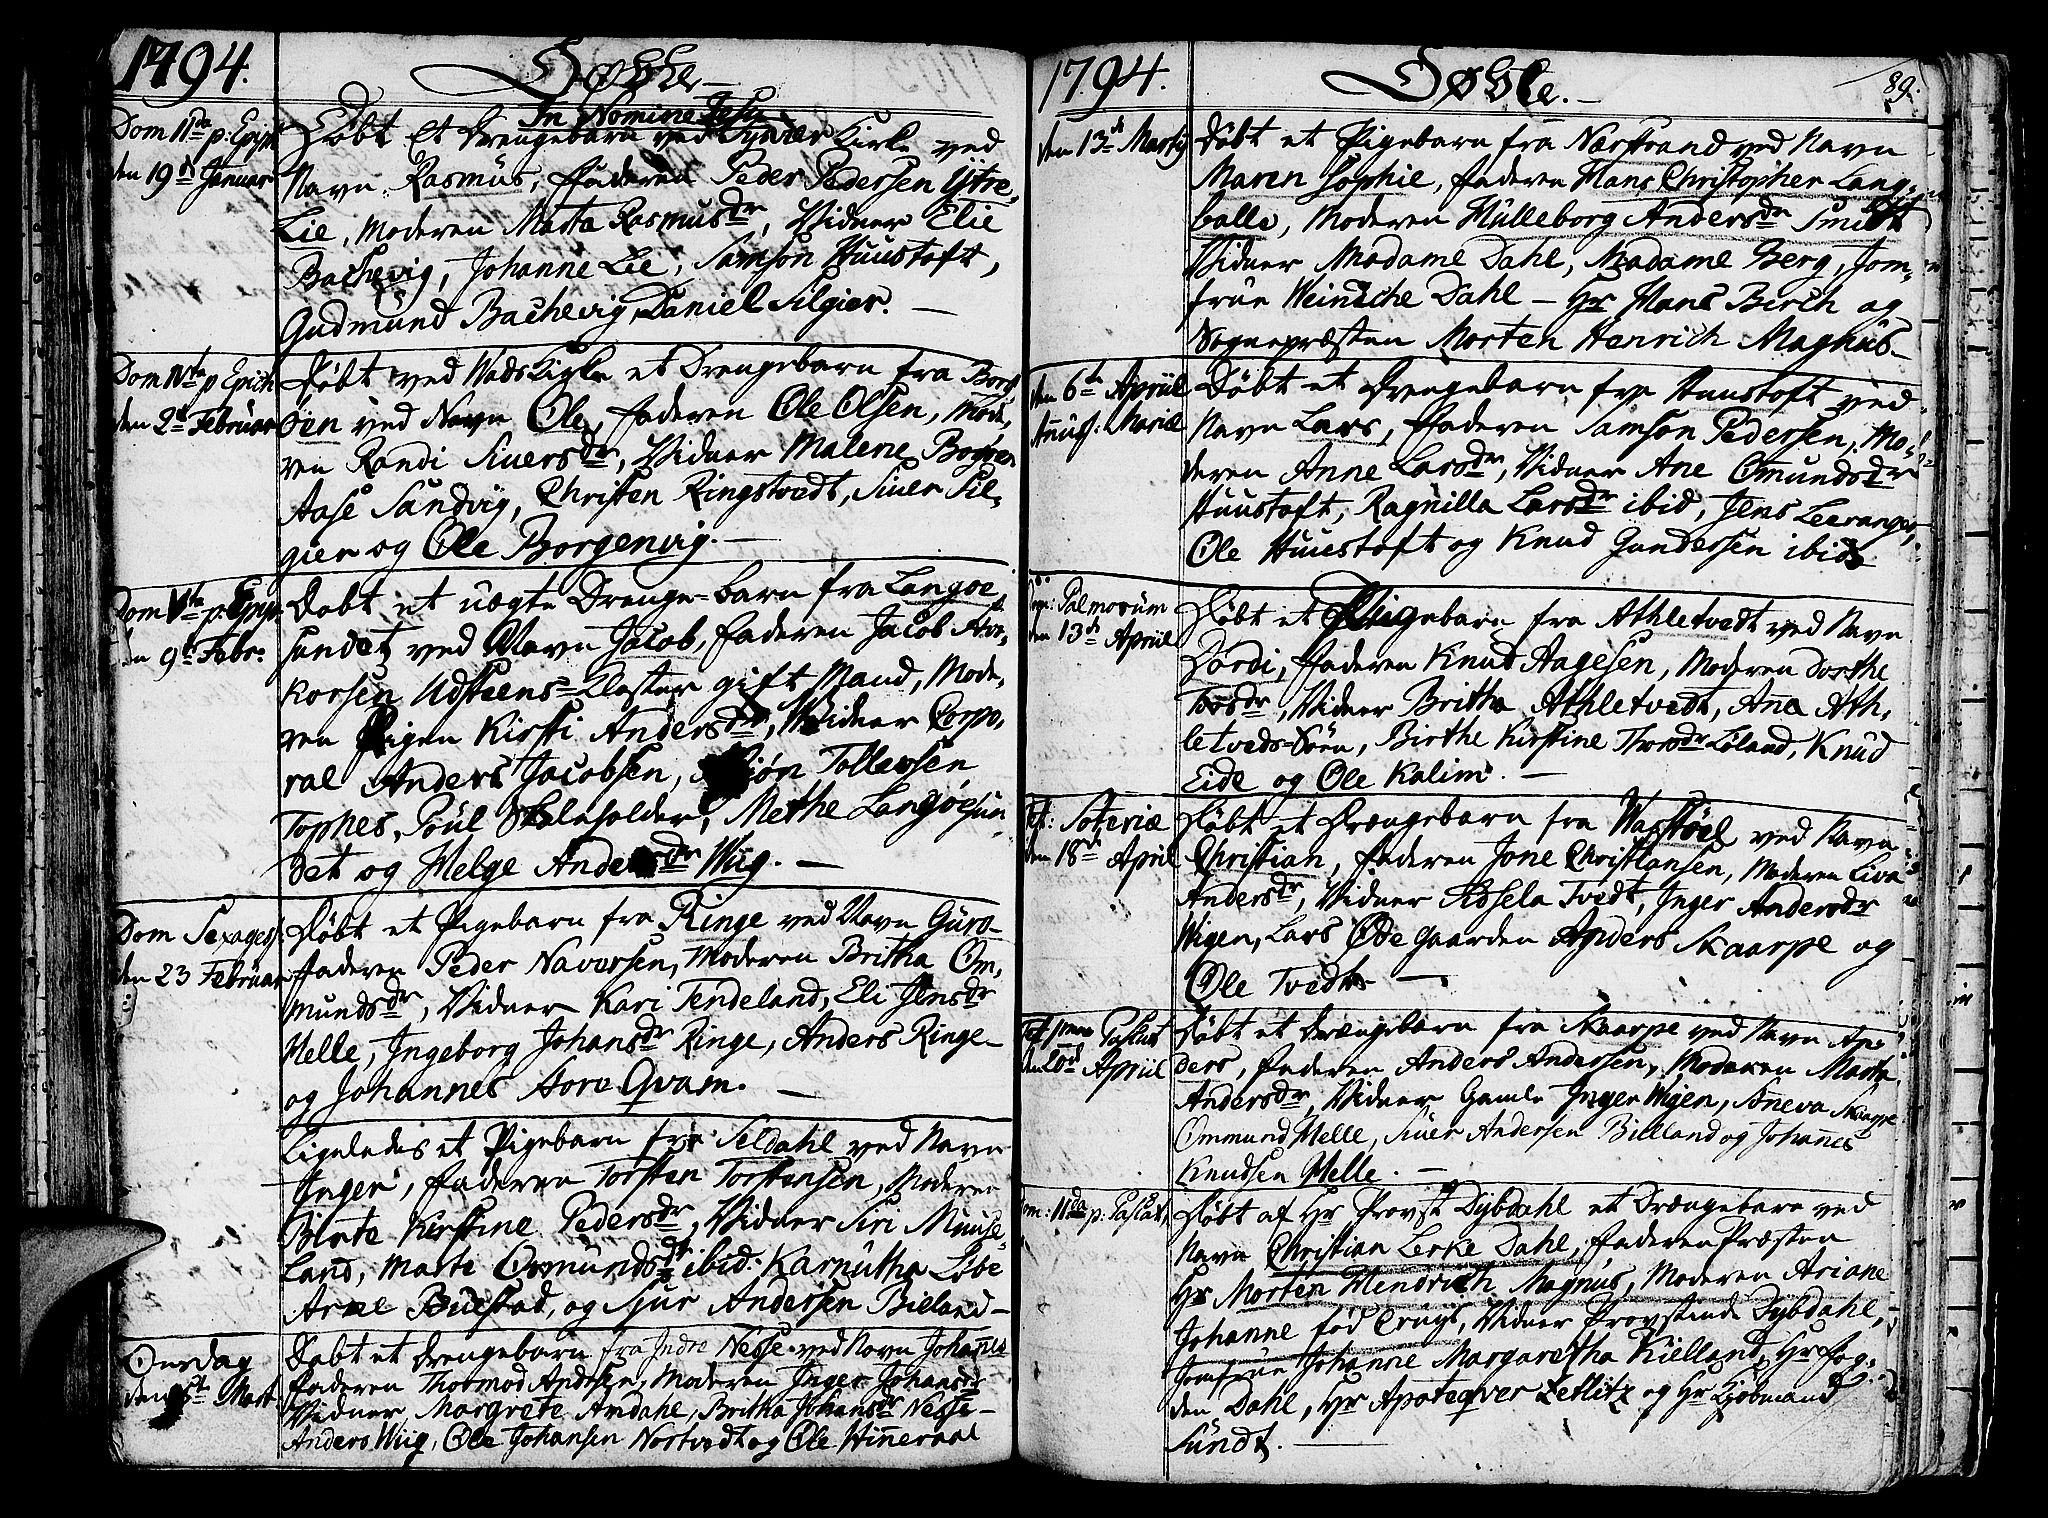 1794.
Døbte.
In Nomine Jesu
Dom IIda p: Epiph
den 19d Januar
Døbt et Drengebarn ved Kirke ved
Navn Rasmus, Faderen Peder Pedersen Ytre
Lie, Moderen Marta Rasmusdr, Vidner Elie
Bachevig, Johanne Lie, Samson Huustoft,
Gudmund Bachevig, Daniel Silgier.
Dom IVta p Epiph
den 2d Februar
Døbt ved Wads Kirke et Drengebarn fra Borg
øen ved Navn Ole, Faderen Ole Olsen, Mode,
ren Randi Siversdr, Vidner Malene Borgen
Aase Sandvig, Christen Ringstvedt, Siver Sil,
gier og Ole Borgenvig.
Dom Vta p: Epiph
den 9d Febr.
Døbt et uægte Drenge-barn fra Langøe
sundet ved Navn Jacob, Faderen Jacob
korsen Udsteens-Closter gift Mand, Mode,
ren Pigen Kirsti Andersdr, Vidner Corpo,
ral Anders Jacobsen, Tollevsen
Tophes, Poul Skoleholder, Methe Langøesun,
det og Helge Andersdr Wiig.
Dom Sexages:
den 23 Februar
Døbt et Pigebarn fra Ringe ved Navn Guro-
Faderen Peder Navarsen, Moderen Britha Om,
mundsdr, Vidner Kari Tendeland, Eli Jensdr
Melle, Ingeborg Johansdr Ringe, Anders Ringe-
og Johannes Aore Qvam.
Ligeledes et Pigebarn fra Seldahl ved Navn
Inger, Faderen Torsten Torstensen, Moderen
Birte Kirstine Pedersdr, Vidner Siri Muuse,
land, Marte Osmundsdr ibid. Karnutha Lobe
Arne Buestad, og Sjur Andersen Bieland-
Onsdag
den 5t Mart
Døbt et Drengebarn fra Indre Nesse ved Navn Johannes
Faderen Thormod Andersen, Moderen Inger Johansdr
Vidner Margrete Amdahl, Britha Johansdr Nesse-
Anders Wiig, Ole Johansen Nortvedt og Ole Hinneraae
1794.
Døbte.
89.
den 13d Martij
Døbt et Pigebarn fra Narstrand ved Navn
Maren Sophie, Faderen Hans Christopher Lang,
balle, Moderen Hülleborg Andersdr Smidt
Vidner Madame Dahl, Madame Berg, Jom,
frue Weinche Dahl - Hr Hans Birch og
Sognepræsten Morten Henrich Magnus-
den 6te Apriil
Anuf: Mariæ
Døbt et Drengebarn fra Huustoft ved
Navn Lars, Faderen Samson Pedersen, Mo,
deren Anne Larsdr, Vidner Ane Omundsdr
Huustoft, Ragnilla Larsdr ibid, Jens Leeranger,
Ole Huustoft og Knud Gundersen ibid.
Palmorum
den 13d Apriil
Døbt et Pigebarn fra Athletvedt ved Navn
Dordi, Faderen Knud Aagesen, Moderen Dorthe
Torsdr, Vidner Britha Athletvedt, Ane Ath,
letveds-Søen, Birthe Kirstine Thorsdr Løland, Knud
Eide og Ole Kalim.
Fest: Soteriæ
den 18d April
Døbt et Drengebarn fra Wasstøel ved Navn
Christian, Faderen Jone Christiansen, Moderen Liva
Andersdr, Vidner Adsela Tvedt, Inger Andersdr
Wigen, Lars Ødegaarden Anders Skaarpe og
Ole Tvedt.
Paschat
den 20d Apriil
Døbt et Drengebarn fra Skaarpe ved Navn An,
ders, Faderen Anders Andersen, Moderen Marta
Andersdr Vidner Gamle Inger Wigen, Sæneva Skaarpe
Ommund Melle, Siver Andersen Bieland og Johannes
Knudsen Melle.
Dom: IIda p: Paschat,
Døbt af Hr Provst Dybdahl et Drengebarn ved
Navn Christian Lerke Dahl, Faderen Præsten
Hr Morten Hendrich Magnus, Moderen Ariane
Johanne fød Cruys, Vidner Provstinde Dybdahl,
Jomfrue Johanne Margaretha Kielland, Hr Fog,
den Dahl, Hr Apoteqver Zetlitz og Hr Kjøbmand
Sundt.